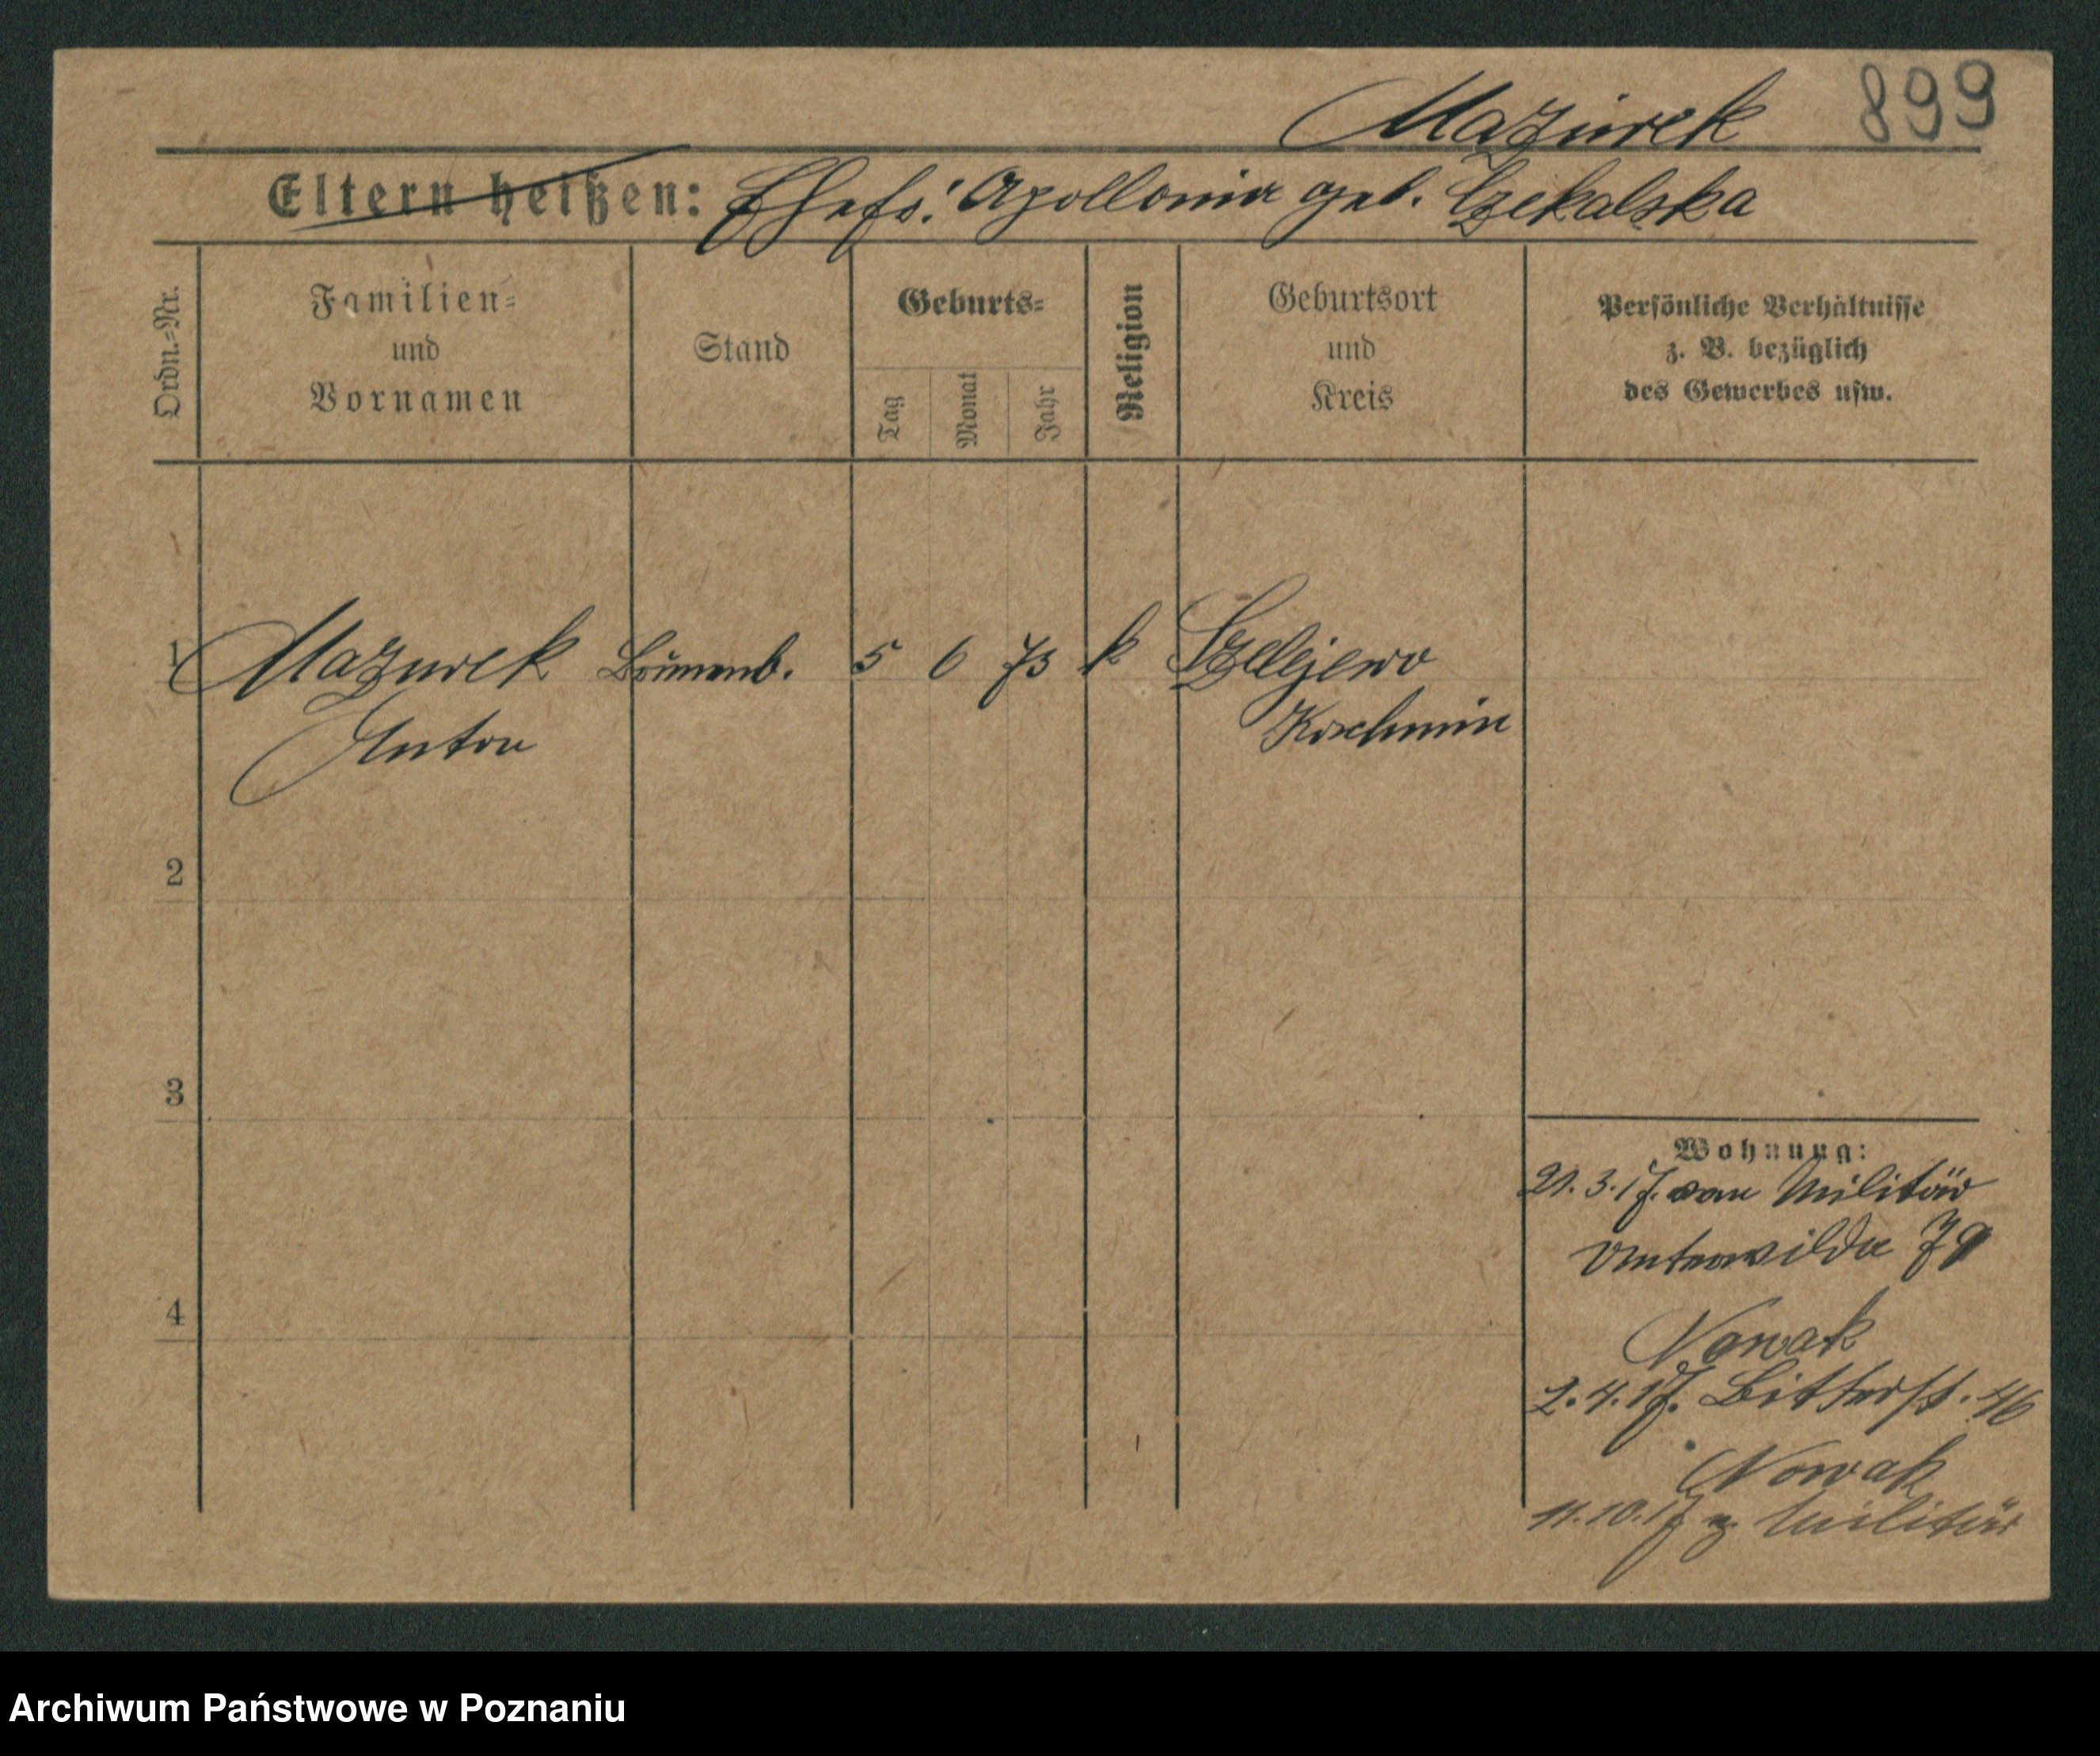 Mazurek 899
Eltern heißen: Ehefr: Apollonia geb. Czekalska
Ordn.=Nr.
Familien=
und
Vornamen
Stand
Geburts=
Tag
Monat
Jahr
Religion
Geburtsort
und
Kreis
Persönliche Verhältnisse
z. B. bezüglich
des Gewerbes usw.
1 Mazurek 5 6 73 k Szelejewo
Anton Koschmin
2
3
4
Wohnung:
21.3.17. vom Militär
Unterwilda 79
Nowak
2.4.17. Bitterst. 46
Nowak
11.10.17 z. Militär
Archiwum Państwowe w Poznaniu